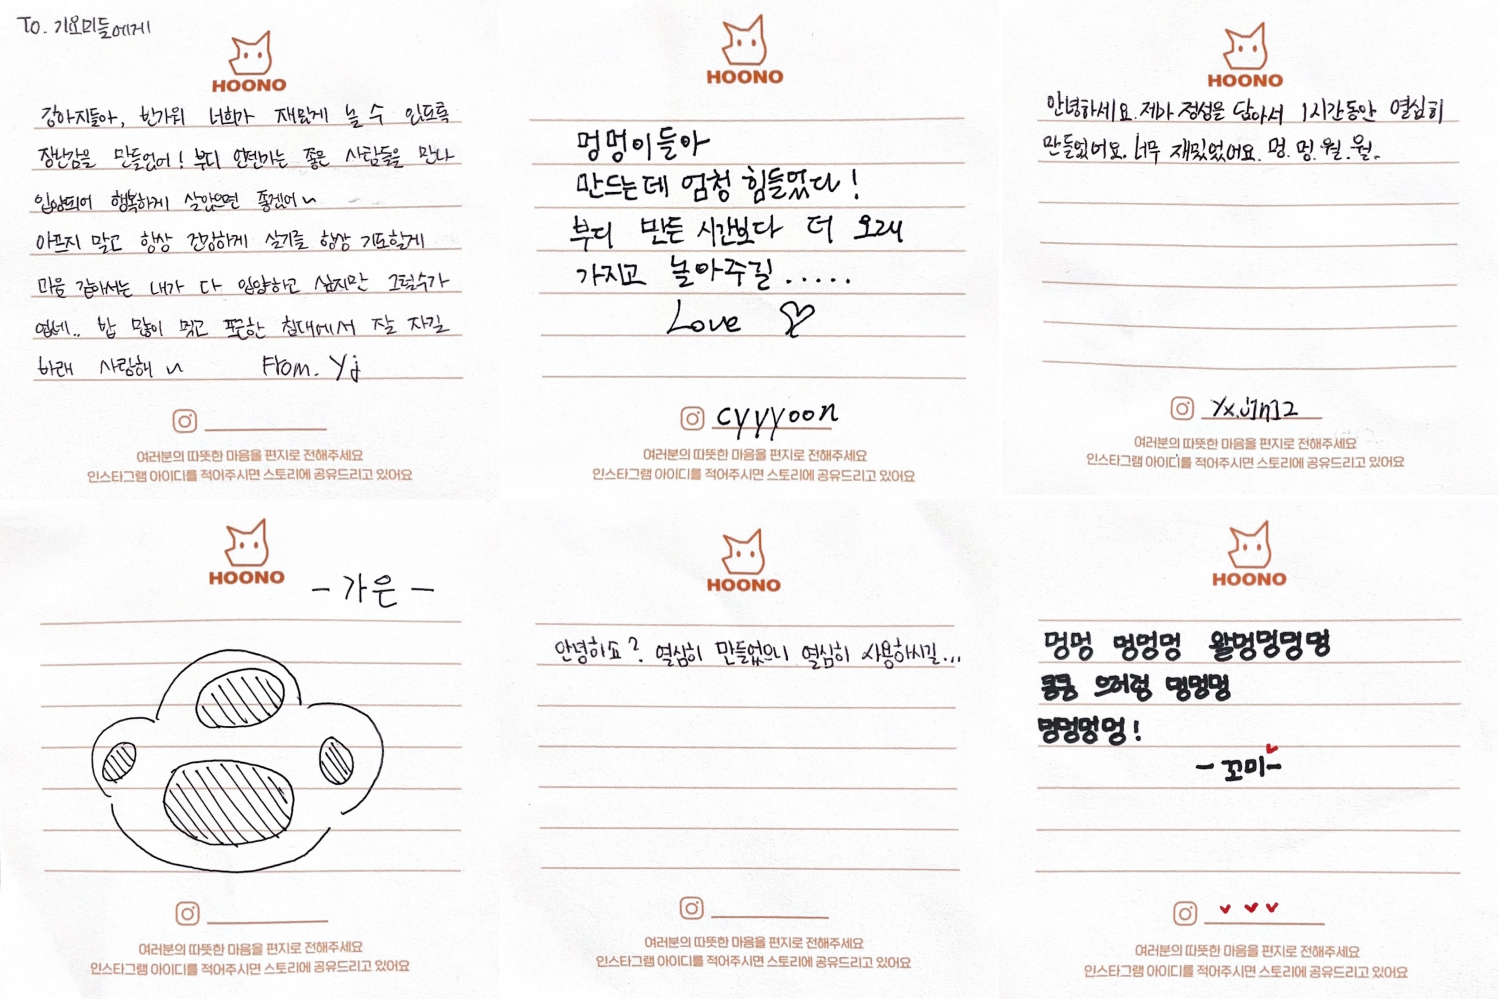 To. 기요미들에게
HOONO
강아지들아, 반가워 너희가 재밌게 놀 수 있도록
장난감을 만들었어! 부디 언젠가는 좋은 사람들을 만나
입양되어 행복하게 살았으면 좋겠어~
아프지 말고 항상 건강하게 살기를 항상 기도할게
마음 같아서는 내가 다 입양하고 싶지만 그럴수가
없네.. 밥 많이 먹고 푹신한 침대에서 잘 자길
바래 사랑해~ From. Yj
여러분의 따뜻한 마음을 편지로 전해주세요
인스타그램 아이디를 적어주시면 스토리에 공유드리고 있어요
HOONO
멍멍이들아
만드는데 엄청 힘들었다!
부디 만든 시간보다 더 오래
가지고 놀아주길.....
Love ♡
cyyyoon
여러분의 따뜻한 마음을 편지로 전해주세요
인스타그램 아이디를 적어주시면 스토리에 공유드리고 있어요
HOONO
안녕하세요. 제가 정성을 담아서 1시간동안 열심히
만들었어요. 너무 재밌었어요. 멍. 멍. 월. 월.
여러분의 따뜻한 마음을 편지로 전해주세요
인스타그램 아이디를 적어주시면 스토리에 공유드리고 있어요
HOONO
- 가은 -
여러분의 따뜻한 마음을 편지로 전해주세요
인스타그램 아이디를 적어주시면 스토리에 공유드리고 있어요
HOONO
안녕하쇼? 열심히 만들었으니 열심히 사용하시길...
여러분의 따뜻한 마음을 편지로 전해주세요
인스타그램 아이디를 적어주시면 스토리에 공유드리고 있어요
HOONO
멍멍 멍멍멍 왈멍멍멍멍
킁킁 으르렁 멍멍멍
멍멍멍멍!
- 꼬미 -
여러분의 따뜻한 마음을 편지로 전해주세요
인스타그램 아이디를 적어주시면 스토리에 공유드리고 있어요